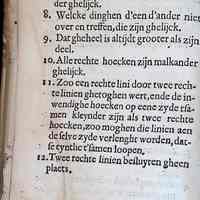 der ghelijck.
8. Welcke dinghen d'een d'ander niet
over en treffen, die zijn ghelijck.
9. Dat gheheel is altijdt grooter als zijn
deel.
10. Alle rechte hoecken zijn malkander
ghelijck.
11. Zoo een rechte lini door twee rech-
te linien ghetoghen wert, ende de in-
wendighe hoecken op eene zyde tsa-
men kleynder zijn als twee rechte
hoecken, zoo moghen die linien aen
de selve zyde verlenght worden, dat-
se eyntlic t'samen loopen.
12. Twee rechte linien besluyten gheen
plaets.